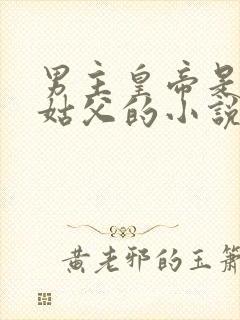 男主皇帝是
姑父的小說
黄老邪的玉簫